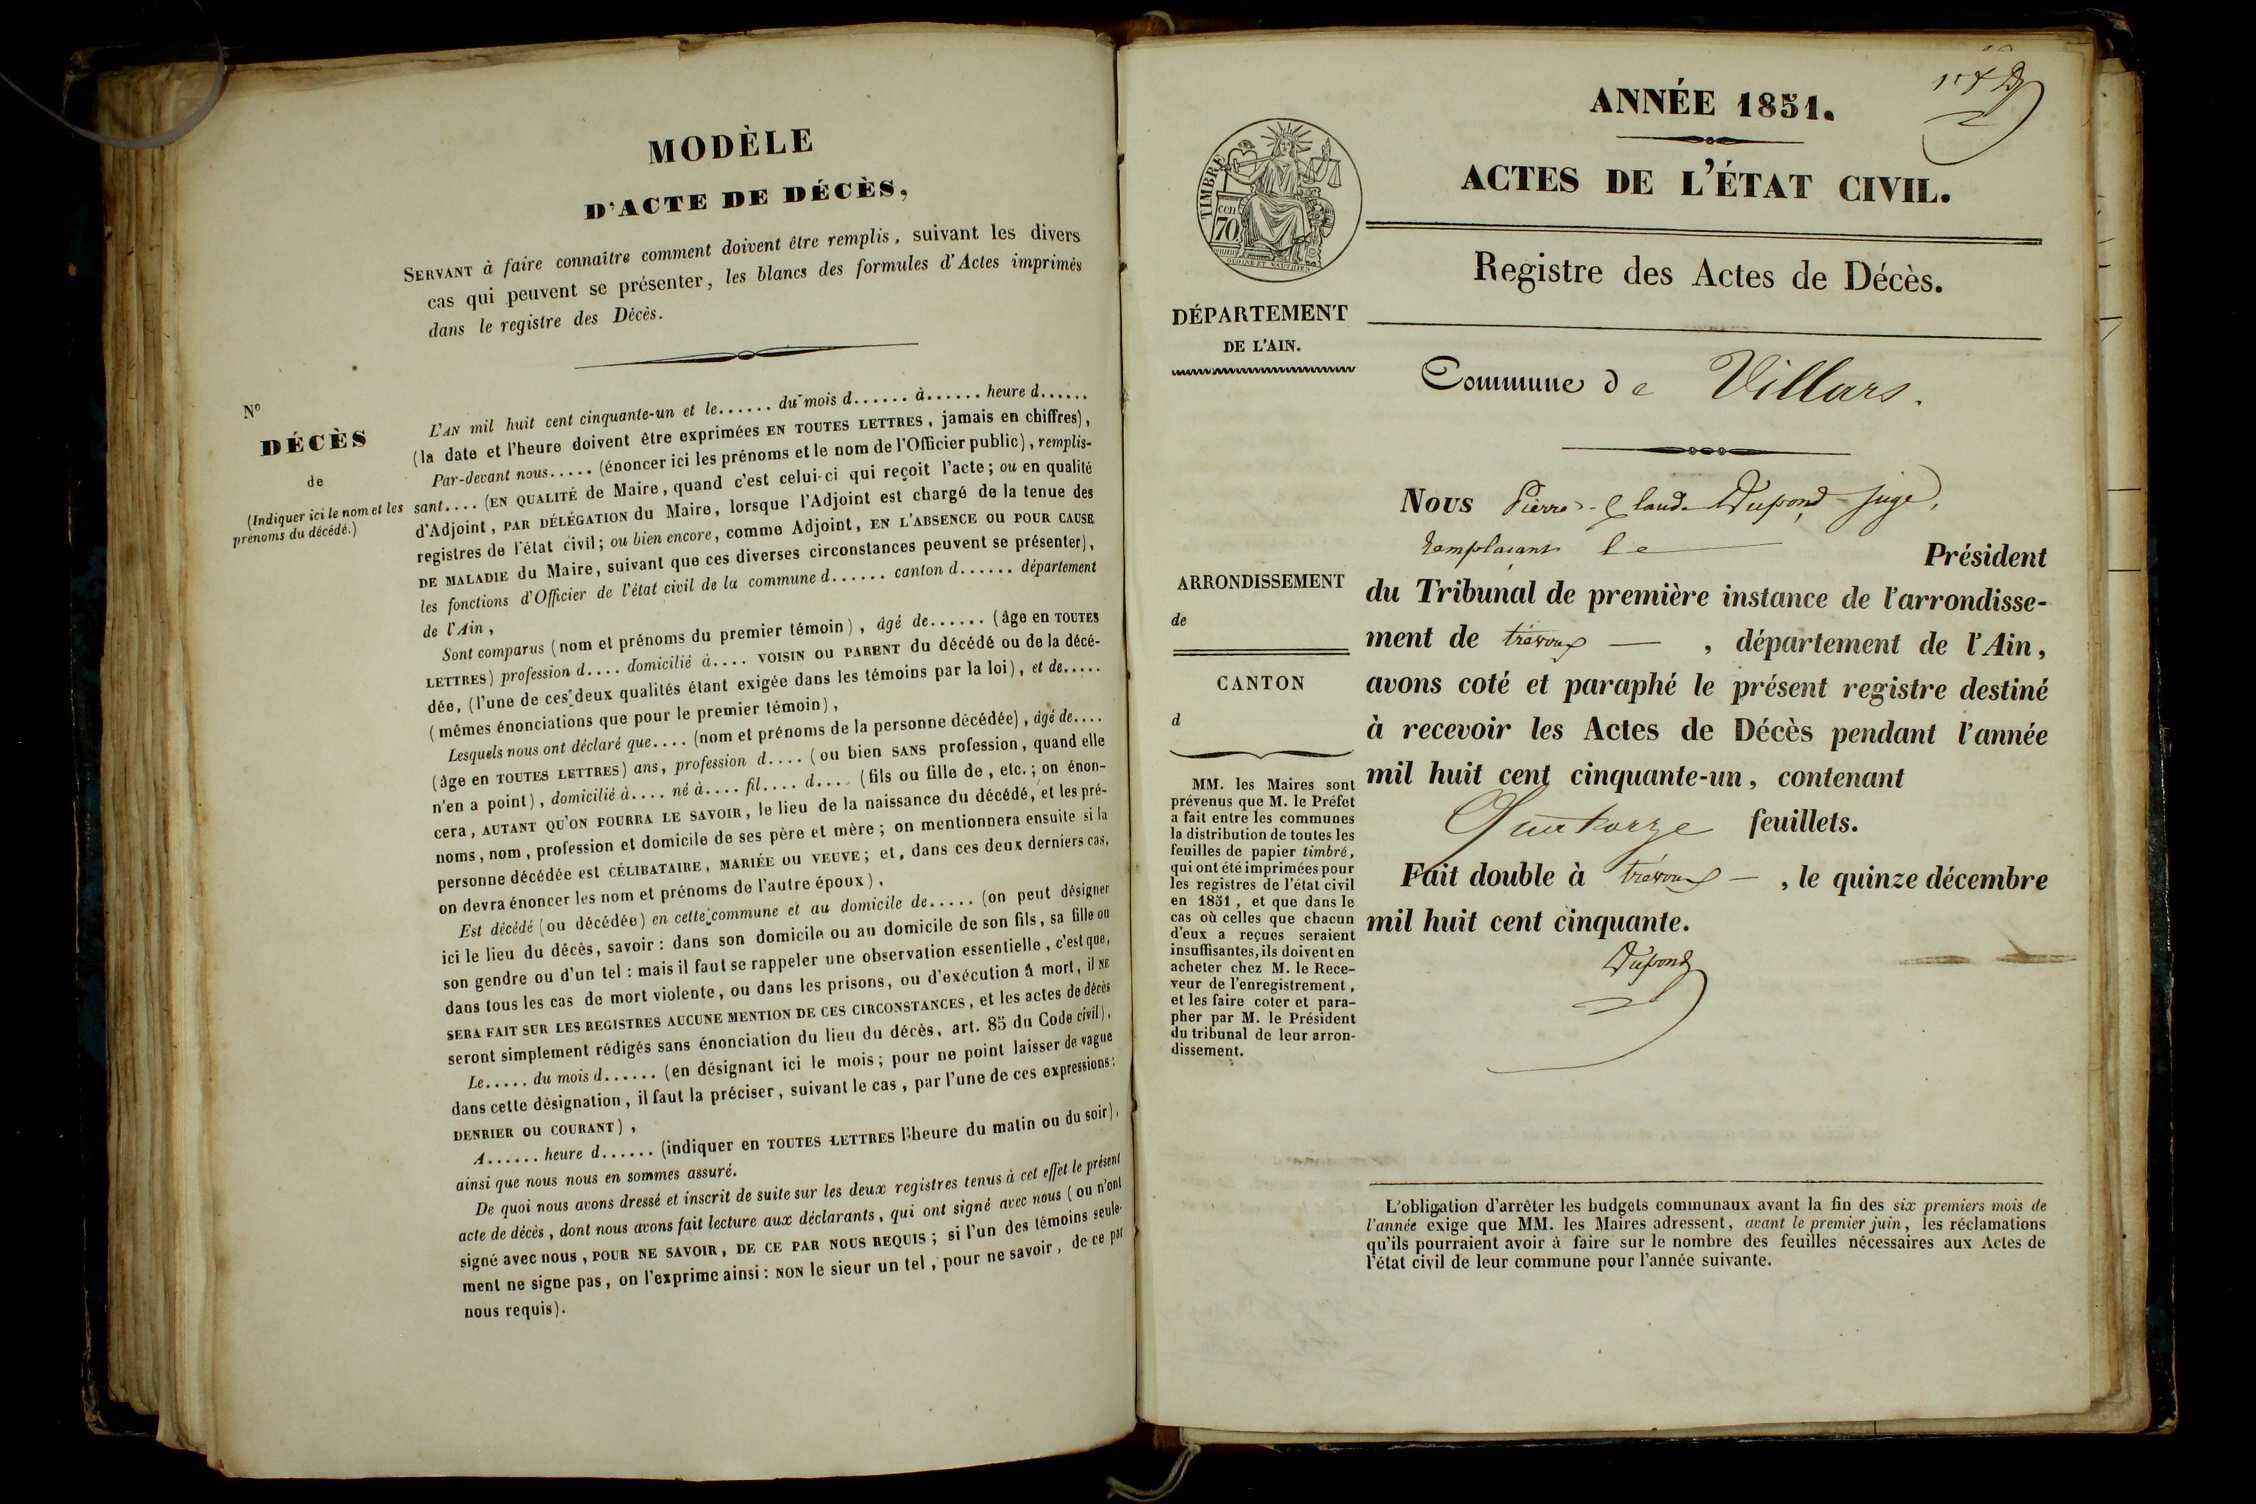 MODÈLE
D'ACTE DE DÉCÈS,
SERVANT à faire connaître comment doivent être remplis, suivant les divers
cas qui peuvent se présenter, les blancs des formules d'Actes imprimés
dans le registre des Décès.
N°
DÉCÈS
de
(Indiquer ici le nom et les
prénoms du décédé.)
L'AN mil huit cent cinquante-un et le...... du mois d...... à...... heure d......
(la date et l'heure doivent être exprimées EN TOUTES LETTRES, jamais en chiffres),
Par-devant nous..... (énoncer ici les prénoms et le nom de l'Officier public), remplis-
sant.... (EN QUALITÉ de Maire, quand c'est celui-ci qui reçoit l'acte; ou en qualité
d'Adjoint, PAR DÉLÉGATION du Maire, lorsque l'Adjoint est chargé de la tenue des
registres de l'état civil; ou bien encore, comme Adjoint, EN L'ABSENCE OU POUR CAUSE
DE MALADIE du Maire, suivant que ces diverses circonstances peuvent se présenter),
les fonctions d'Officier de l'état civil de la commune d...... canton d...... département
de l'Ain,
Sont comparus (nom et prénoms du premier témoin), âgé de...... (âge en TOUTES
LETTRES) profession d.... domicilié à.... VOISIN OU PARENT du décédé ou de la décé-
dée, (l'une de ces deux qualités étant exigée dans les témoins par la loi), et de.....
(mêmes énonciations que pour le premier témoin),
Lesquels nous ont déclaré que.... (nom et prénoms de la personne décédée), âgé de....
(âge en TOUTES LETTRES) ans, profession d.... (ou bien SANS profession, quand elle
n'en a point), domicilié à.... né à.... fil.... d.... (fils ou fille de, etc.; on énon-
cera, AUTANT QU'ON POURRA LE SAVOIR, le lieu de la naissance du décédé, et les pré-
noms, nom, profession et domicile de ses père et mère; on mentionnera ensuite si la
personne décédée est CÉLIBATAIRE, MARIÉE OU VEUVE; et, dans ces deux derniers cas,
on devra énoncer les nom et prénoms de l'autre époux),
Est décédé (ou décédée) en cette commune et au domicile de..... (on peut désigner
ici le lieu du décès, savoir: dans son domicile ou au domicile de son fils, sa fille ou
son gendre ou d'un tel: mais il faut se rappeler une observation essentielle, c'est que,
dans tous les cas de mort violente, ou dans les prisons, ou d'exécution à mort, il NE
SERA FAIT SUR LES REGISTRES AUCUNE MENTION DE CES CIRCONSTANCES, et les actes de décès
seront simplement rédigés sans énonciation du lieu du décès, art. 85 du Code civil),
Le..... du mois d...... (en désignant ici le mois; pour ne point laisser de vague
dans cette désignation, il faut la préciser, suivant le cas, par l'une de ces expressions:
DENRIER OU COURANT),
A...... heure d...... (indiquer en TOUTES LETTRES l'heure du matin ou du soir),
ainsi que nous nous en sommes assuré.
De quoi nous avons dressé et inscrit de suite sur les deux registres tenus à cet effet le présent
acte de décès, dont nous avons fait lecture aux déclarants, qui ont signé avec nous (ou n'ont
signé avec nous, POUR NE SAVOIR, DE CE PAR NOUS REQUIS; si l'un des témoins seule-
ment ne signe pas, on l'exprime ainsi: NON le sieur un tel, pour ne savoir, de ce par
nous requis).
ANNÉE 1851.
ACTES DE L'ÉTAT CIVIL.
Registre des Actes de Décès.
TIMBRE
cen
70
DÉPARTEMENT
DE L'AIN.
Commune de Villars.
Nous Pierre-Claude Dupond juge,
remplaçant le Président
du Tribunal de première instance de l'arrondisse-
ment de trévoux — , département de l'Ain,
avons coté et paraphé le présent registre destiné
à recevoir les Actes de Décès pendant l'année
mil huit cent cinquante-un, contenant
Quatorze feuillets.
Fait double à trévoux — , le quinze décembre
mil huit cent cinquante.
Dupond
ARRONDISSEMENT
de
CANTON
d
MM. les Maires sont
prévenus que M. le Préfet
a fait entre les communes
la distribution de toutes les
feuilles de papier timbré,
qui ont été imprimées pour
les registres de l'état civil
en 1851, et que dans le
cas où celles que chacun
d'eux a reçues seraient
insuffisantes, ils doivent en
acheter chez M. le Rece-
veur de l'enregistrement,
et les faire coter et para-
pher par M. le Président
du tribunal de leur arron-
dissement.
L'obligation d'arrêter les budgets communaux avant la fin des six premiers mois de
l'année exige que MM. les Maires adressent, avant le premier juin, les réclamations
qu'ils pourraient avoir à faire sur le nombre des feuilles nécessaires aux Actes de
l'état civil de leur commune pour l'année suivante.